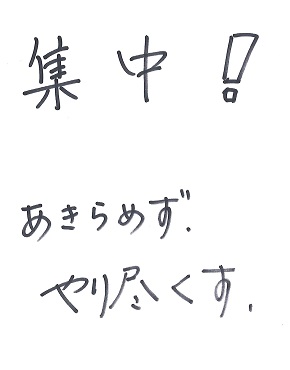 集中!
あきらめず.
やり尽くす.